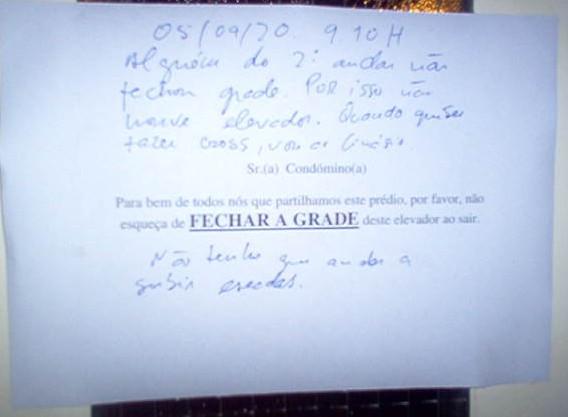 05/09/20. 9 10H
Alguém do 2º andar não
fechou grade. Por isso não
houve elevador. Quando quiser
fazer cross, vou ao Ginásio.
Sr.(a) Condómino(a)
Para bem de todos nós que partilhamos este prédio, por favor, não
esqueça de FECHAR A GRADE deste elevador ao sair.
Não tenho que andar a
subir escadas.